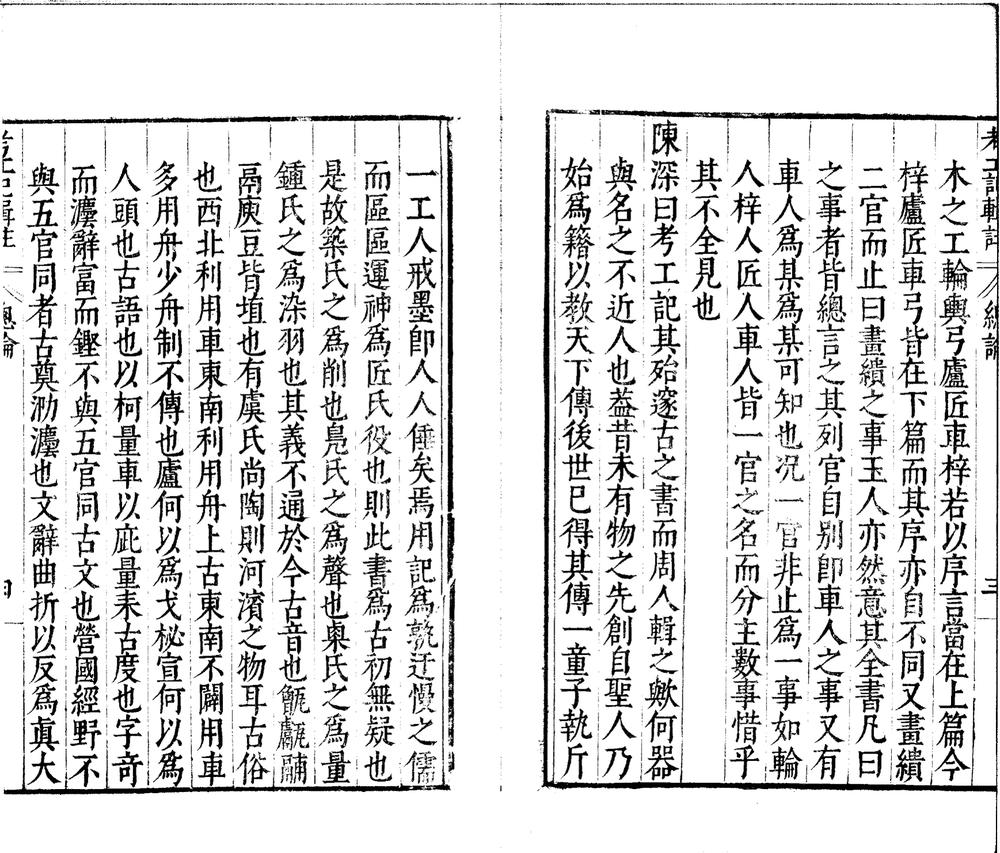 考工記輯註 總論 三
木之工輪輿弓廬匠車梓若以序言當在上篇今
梓廬匠車弓皆在下篇而其序亦自不同又畫繢
二官而止曰畫繢之事玉人亦然意其全書凡曰
之事者皆總言之其列官自別卽車人之事又有
車人爲某爲某可知也况一官非止爲一事如輪
人梓人匠人車人皆一官之名而分主數事惜乎
其不全見也
陳深曰考工記其殆邃古之書而周人輯之歟何器
與名之不近人也葢昔未有物之先創自聖人乃
始爲籍以教天下傳後世已得其傳一童子執斤
一工人戒墨卽人人倕矣焉用記爲 迂慢之儒
而區區運神爲匠氏役也則此書爲古初無疑也
是故築氏之爲削也鳧氏之爲聲也㮚氏之爲量
鍾氏之爲染羽也其義不通於今古音也甗鬳鬴
鬲庾豆皆埴也有虞氏尚陶則河濱之物耳古俗
也西北利用車東南利用舟上古東南不闢用車
多用舟少舟制不傳也廬何以爲戈柲宣何以爲
人頭也古語也以柯量車以庇量耒古度也字奇
而灋辭富而鏗不與五官同古文也營國經野不
與五官同者古奠泐灋也文辭曲折以反爲眞大
考工記輯註 總論 四